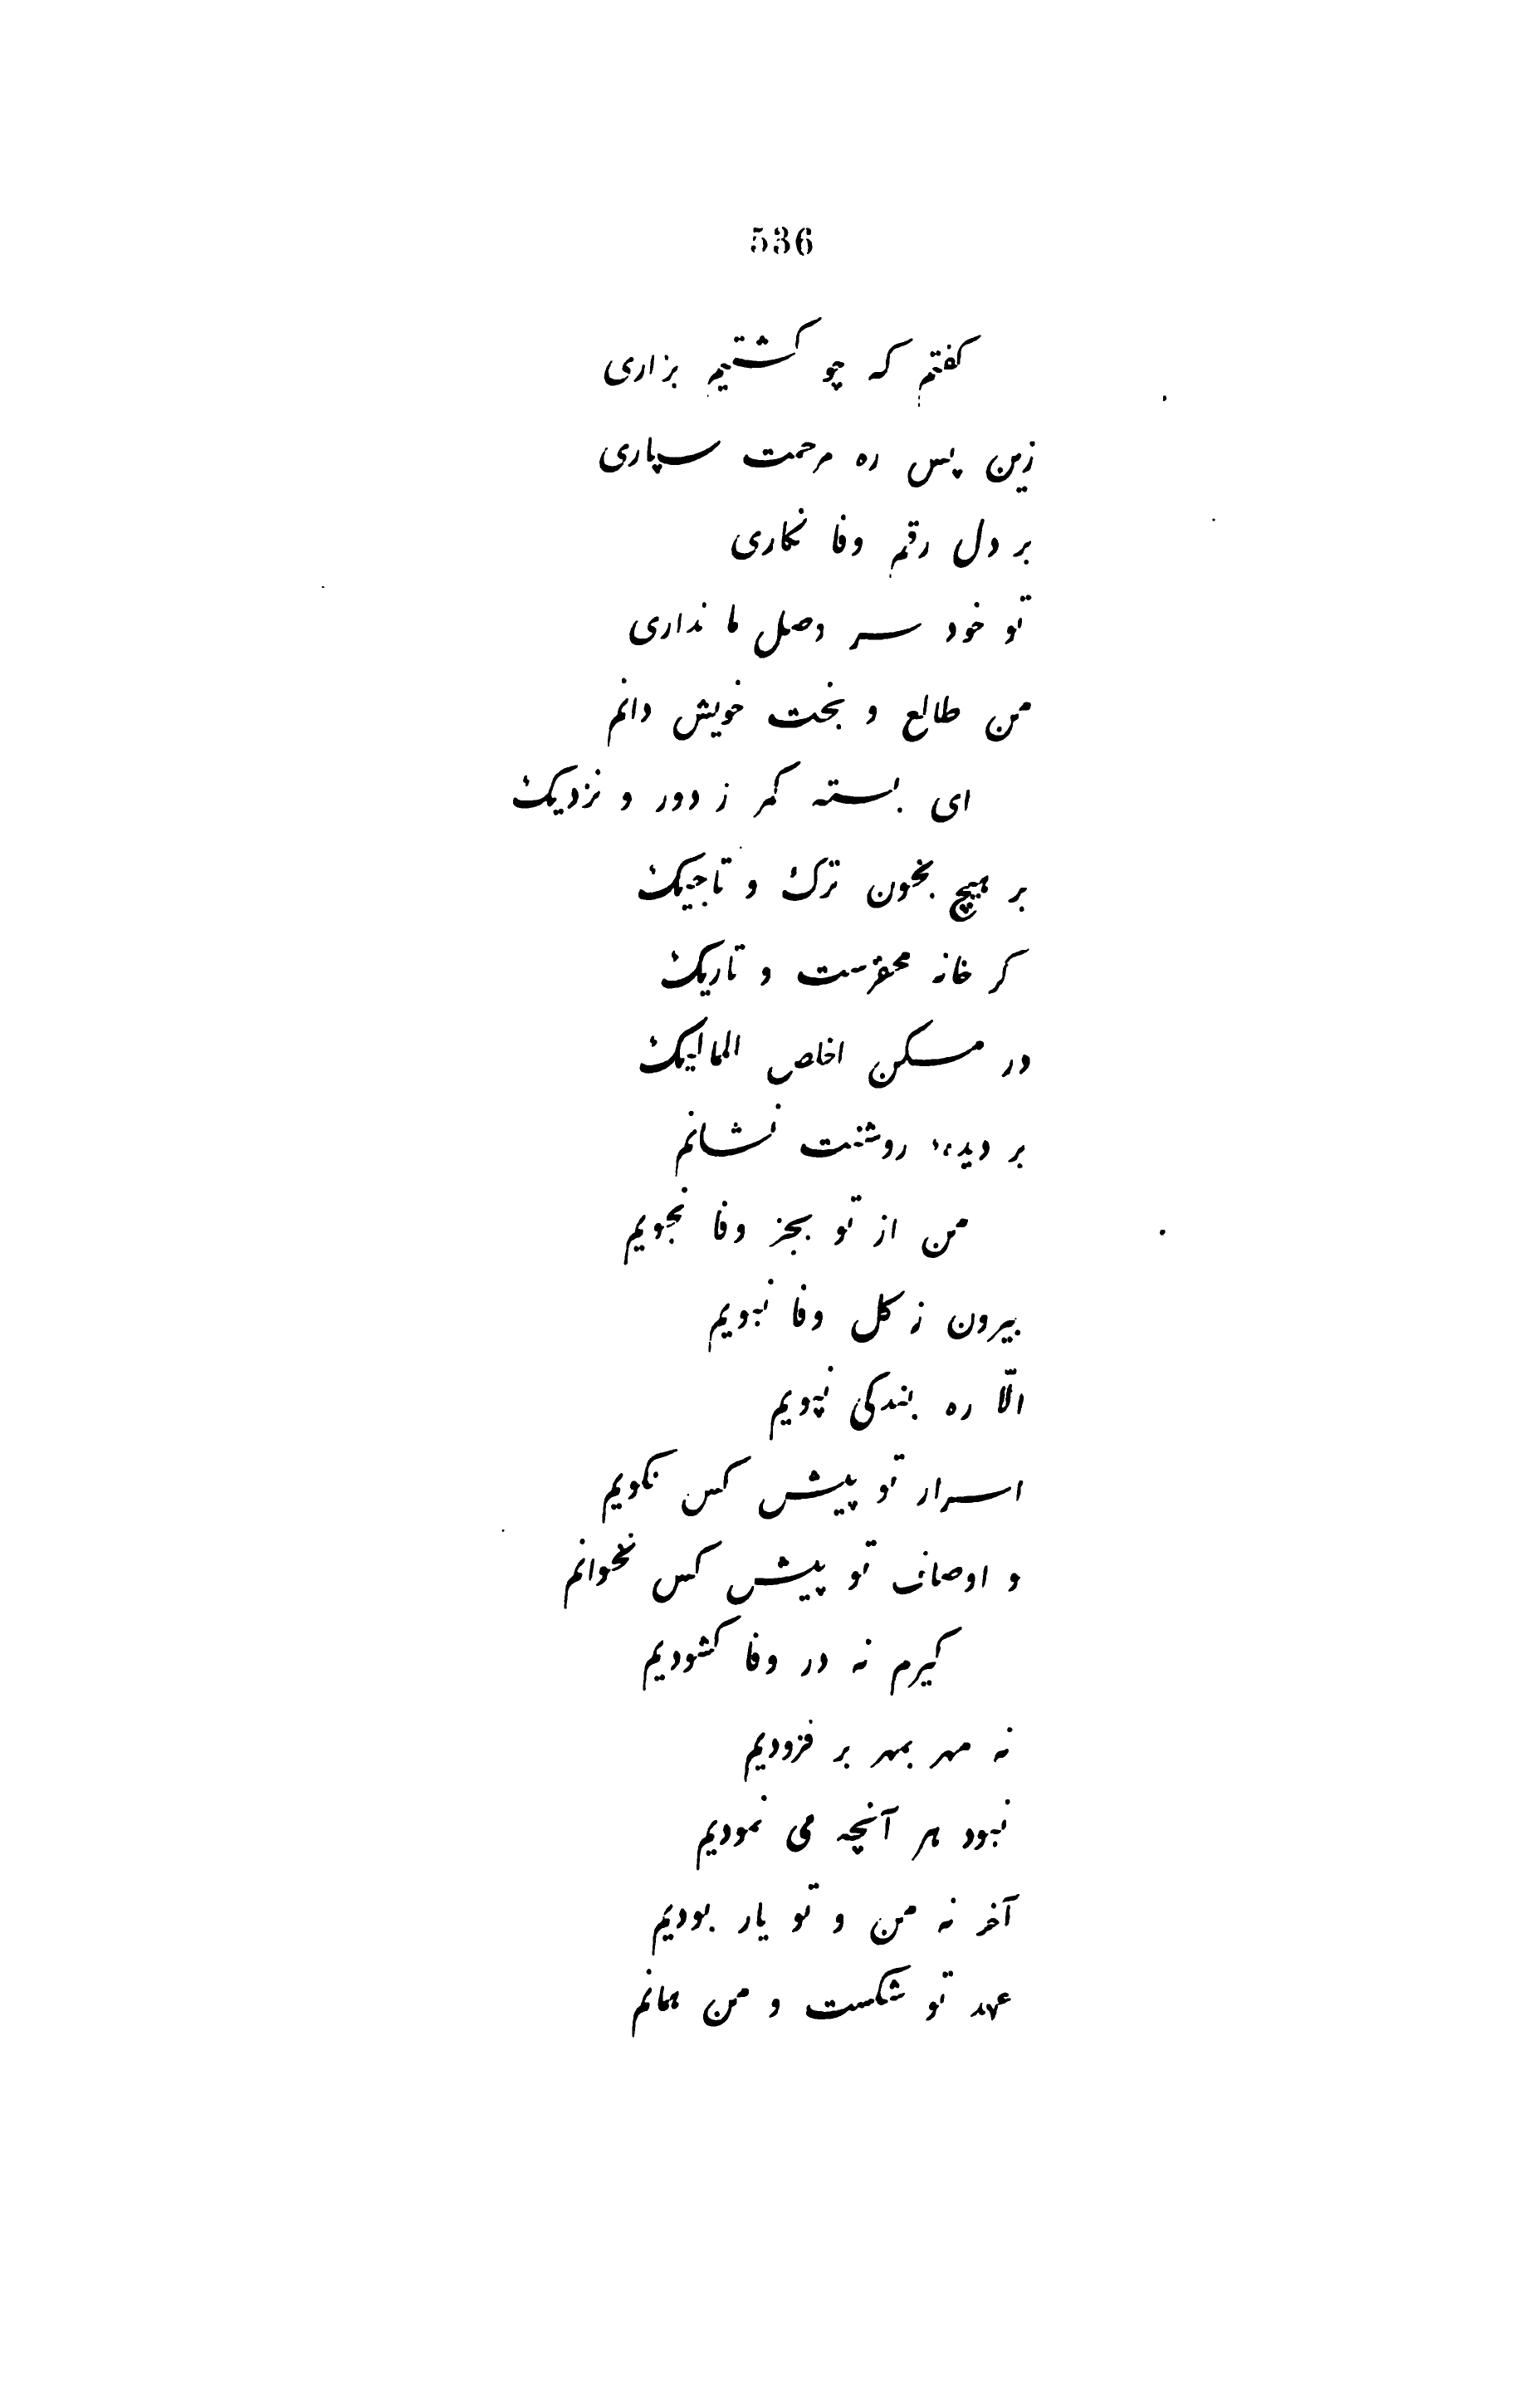 536
کفتم که چو کشتیم بزاری
زین پس ره مرحمت سپاری
بر دل رقم وفا نکاری
تو خود سر وصل ما نداری
من طالع و بخت خویش دانم
ای بسته کمر ز دور و نزدیک
بر هیچ بخون ترک و تاجیک
کر خانه محقرست و تاریک
در مسکن اخلص الممالیک
بر دیدهٔ روشنت نشانم
من از تو بجز وفا نجویم
بیرون ز کل وفا نبویم
الّا ره بندکی نپویم
اسرار تو پیش کس نکویم
و اوصاف تو پیش کس نخوانم
کیرم نه در وفا کشودیم
نه مهر بمهر بر فزودیم
نبود هر آنچه می نمودیم
آخر نه من و تو یار بودیم
عهد تو شکست و من همانم